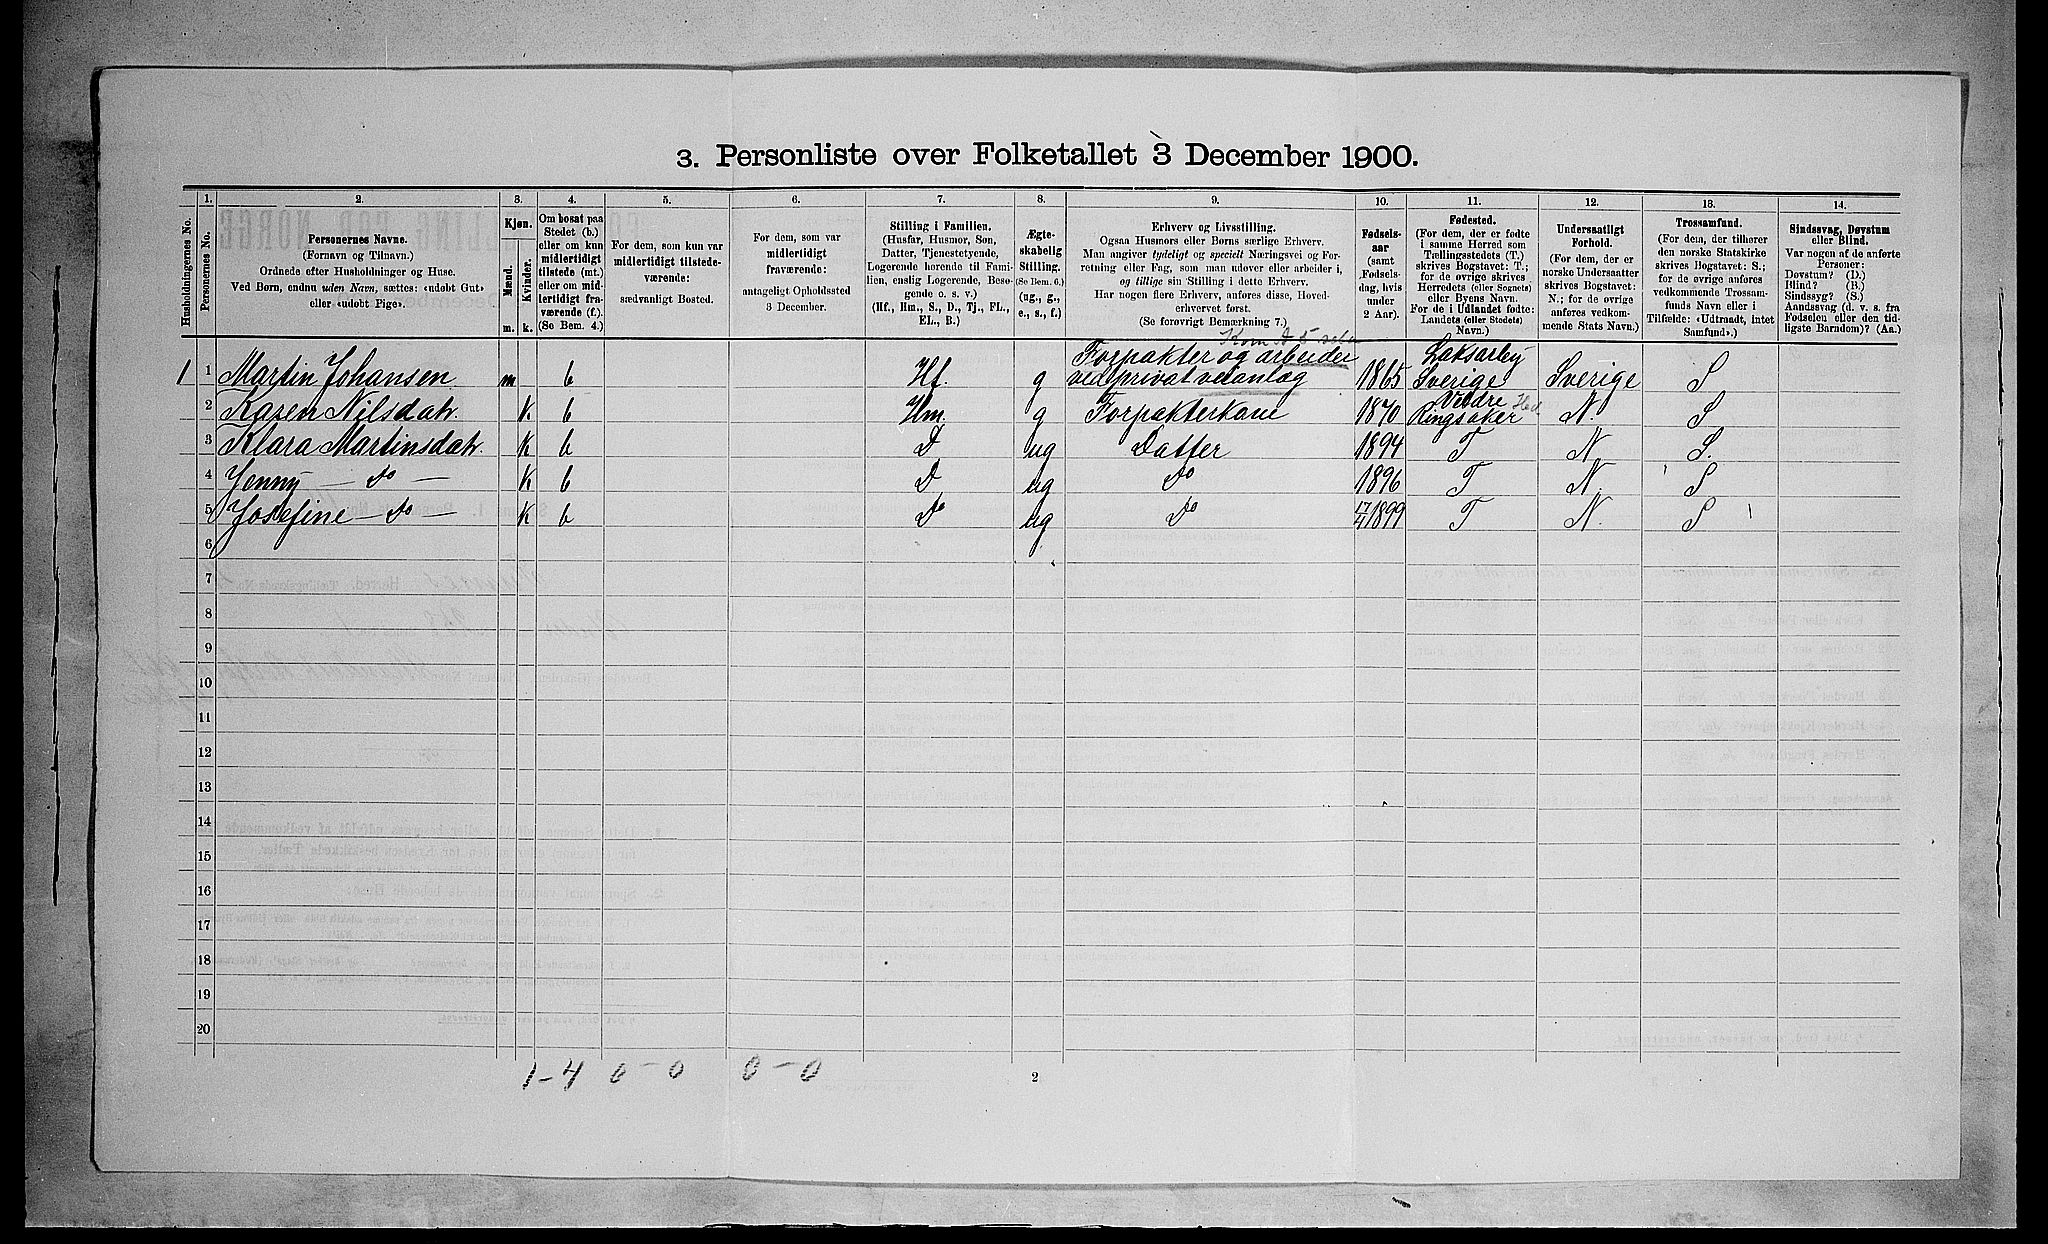 3. Personliste over Folketallet 3 December 1900.
1. 2. 3. 4. 5. 6. 7. 8. 9. 10. 11. 12. 13. 14.
Husholdningernes No.
Personernes No.
Personernes Navne.
(Fornavn og Tilnavn.)
Ordnede efter Husholdninger og Huse.
Ved Børn, endnu uden Navn, sættes: «udøbt Gut»
eller «udøbt Pige».
Kjøn.
Mænd.
Kvinder.
m. k.
Om bosat paa
Stedet (b.)
eller om kun
midlertidigt
tilstede (mt.)
eller om mid-
lertidigt fra-
værende (f.).
(Se Bem. 4.)
For dem, som kun var
midlertidigt tilstede-
værende:
sædvanligt Bosted.
For dem, som var
midlertidigt
fraværende:
antageligt Opholdssted
3 December.
Stilling i Familien.
(Husfar, Husmor, Søn,
Datter, Tjenestetyende,
Logerende hørende til Fami-
lien, enslig Logerende, Besø-
gende o. s. v.)
(Hf., Hm., S., D., Tj., FL.,
EL., B.)
Ægte-
skabelig
Stilling.
(Se Bem. 6.)
(ug., g.,
e., s., f.)
Erhverv og Livsstilling.
Ogsaa Husmors eller Børns særlige Erhverv.
Man angiver tydeligt og specielt Næringsvei og For-
retning eller Fag, som man udøver eller arbeider i,
og tillige sin Stilling i dette Erhverv.
Har nogen flere Erhverv, anføres disse, Hoved-
erhvervet først.
(Se forøvrigt Bemærkning 7.)
Fødsels-
aar
(samt
Fødsels-
dag, hvis
under
2 Aar).
Fødested.
(For dem, der er fødte
i samme Herred som
Tællingsstedets (T.)
skrives Bogstavet: T.;
for de øvrige skrives
Herredets (eller Sognets)
eller Byens Navn.
For de i Udlandet fødte:
Landets (eller Stedets)
Navn.)
Undersaatligt
Forhold.
(For dem, der er
norske Undersaatter
skrives Bogstavet:
N.; for de øvrige
anføres vedkom-
mende Stats Navn.)
Trossamfund.
(For dem, der tilhører
den norske Statskirke
skrives Bogstavet: S.;
for de øvrige anføres
vedkommende Trossam-
funds Navn eller i
Tilfælde: «Udtraadt, intet
Samfund».)
Sindssvag, Døvstum
eller Blind.
Var nogen af de anførte
Personer:
Døvstum? (D.)
Blind? (B.)
Sindssyg? (S.)
Aandssvag (d. v. s. fra
Fødselen eller den tid-
ligste Barndom)? (Aa.)
Laksarby
Forpakter og arbeider
1 1 Martin Johansen m b Hf. g ved privat veianlæg 1865 Sverige Sverige S
Veldre Hed.
2 Karen Nilsdatr. K b Hm. g Forpakterkone 1870 Ringsaker N. S
3 Klara Martinsdatr. K b D ug Datter 1894 T N S.
4 Jenny — Do — K b D ug Do 1896 T N. S
5 Josefine — Do — K b Do ug Do 17/4 1899 T N. S
6
7
8
9
10
11
12
13
14
15
16
17
18
19
20
1 – 4 0 – 0 0 – 0
2